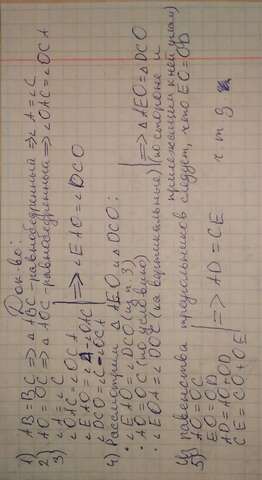 Док-во:
1) AB = BC => △ ABC - равнобедренный => ∠A = ∠C
2) AO = OC => △ AOC - равнобедренный => ∠OAC = ∠OCA
3) ∠A = ∠C
∠OAC = ∠OCA
∠EAO = ∠A - ∠OAC
∠DCO = ∠C - ∠OCA | => ∠EAO = ∠DCO
4) Рассмотрим △ AEO и △ DCO:
· ∠EAO = ∠DCO (из 3)
· AO = OC (по условию)
· ∠EOA = ∠DOC (как вертикальные) | => △AEO = △DCO (по стороне и прилежащим к ней углам)
Из равенства треугольников следует, что EO = OD
5) AO = OC
EO = OD
AD = AO + OD
CE = CO + OE | => AD = CE
ч т д